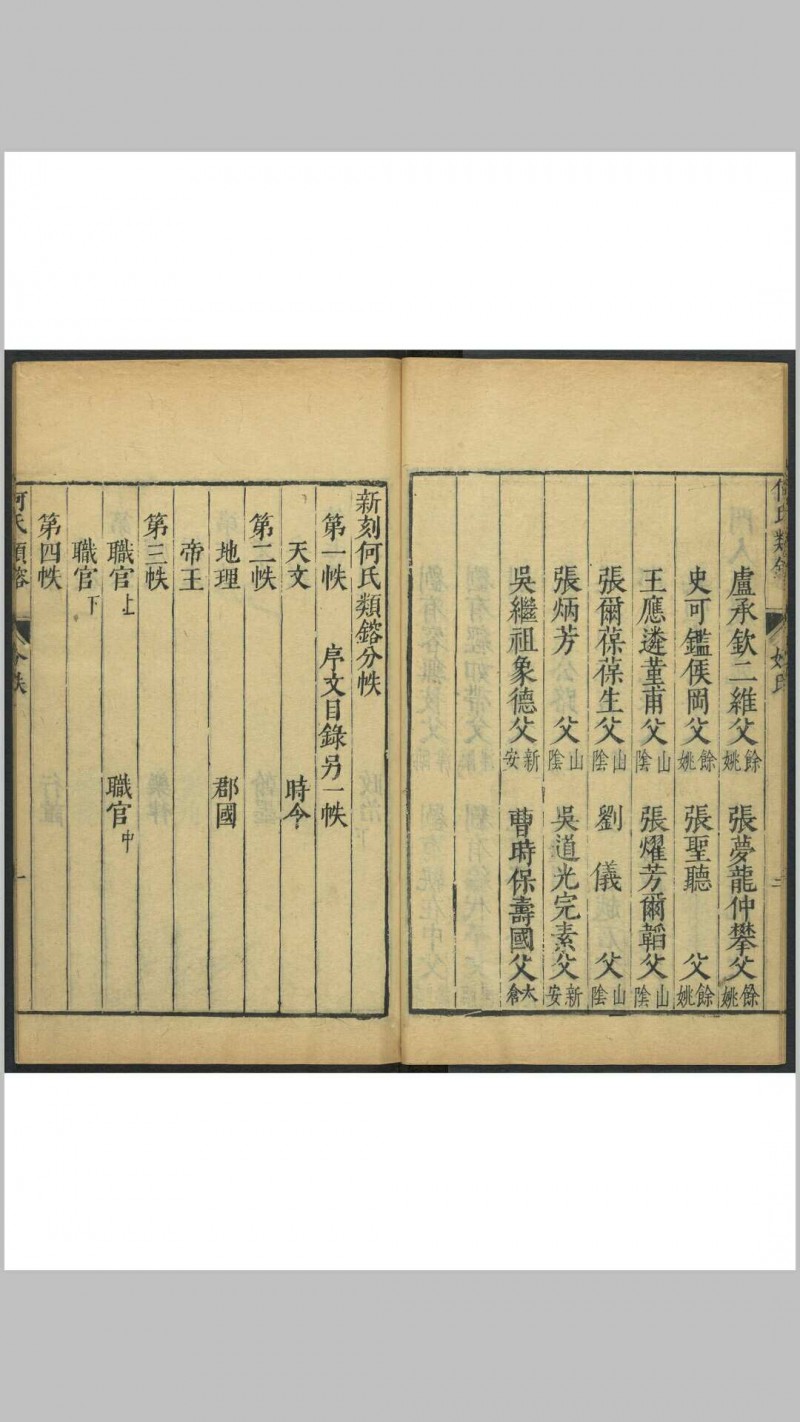 何氏類鎔
姓氏
二
盧承欽二維父餘姚 張夢龍仲攀父餘姚
史可鑑侯岡父餘姚 張聖聽 父餘姚
王應遴董甫父山陰 張燿芳爾韜父山陰
張爾葆葆生父山陰 劉 儀 父山陰
張炳芳 父山陰 吳道光完素父新安
吳繼祖象德父新安 曹時保壽國父太倉
新刻何氏類鎔分帙
第一帙 序文目錄另一帙
天文 時令
第二帙
地理 郡國
帝王
第三帙
職官上 職官中
職官下
第四帙
何氏類鎔
分帙
一